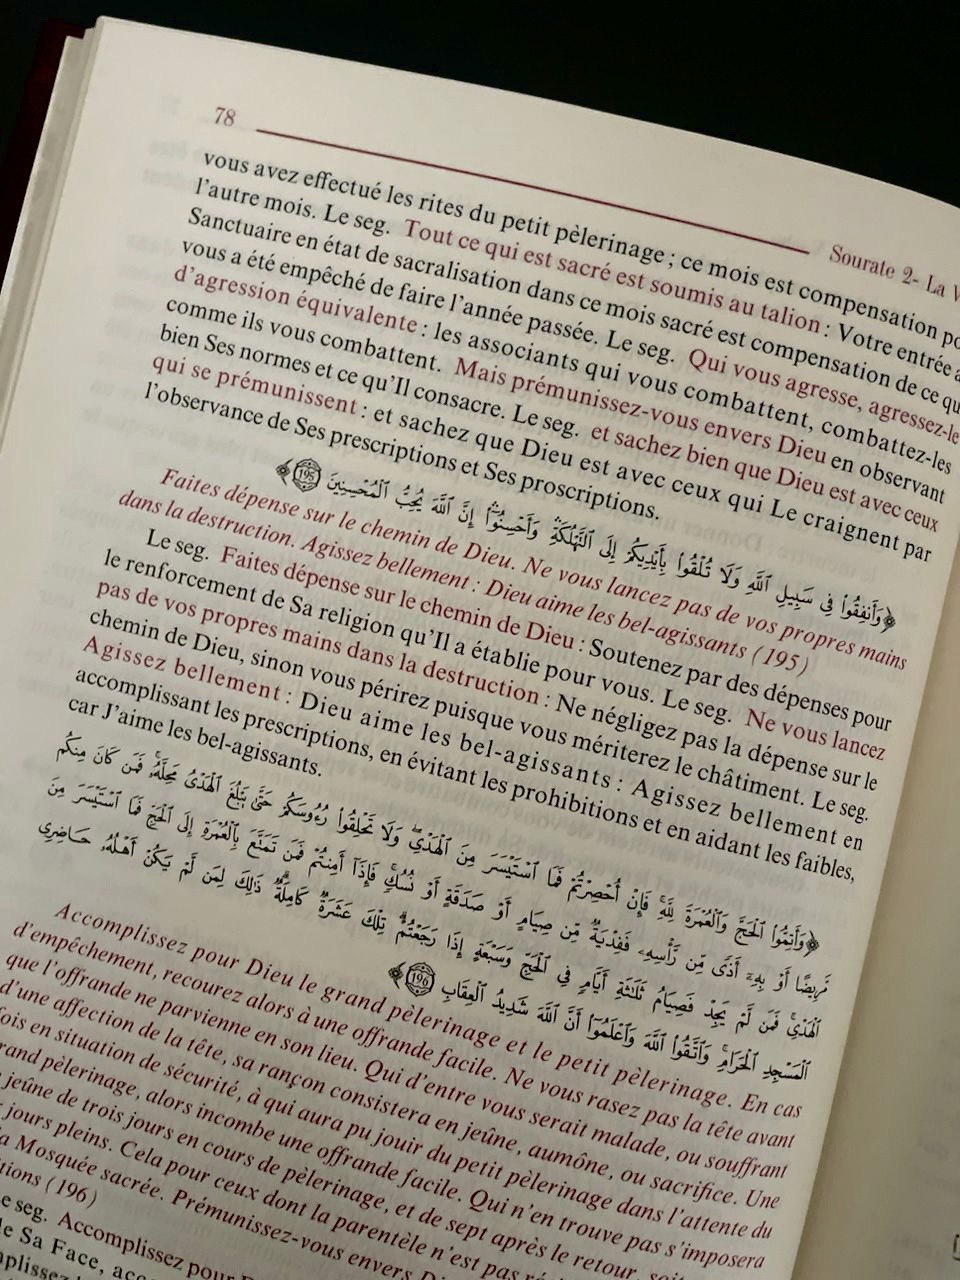 78
Sourate 2- La
vous avez effectué les rites du petit pèlerinage ; ce mois est compensation
l'autre mois. Le seg. Tout ce qui est sacré est soumis au talion : Votre entrée
Sanctuaire en état de sacralisation dans ce mois sacré est compensation de ce
vous a été empêché de faire l'année passée. Le seg. Qui vous agresse,
d'agression équivalente : les associants qui vous combattent, combattez-les
comme ils vous combattent. Mais prémunissez-vous envers Dieu en observant
bien Ses normes et ce qu'Il consacre. Le seg. et sachez bien que Dieu est avec ceux
qui se prémunissent : et sachez que Dieu est avec ceux qui Le craignent par
l'observance de Ses prescriptions et Ses proscriptions.
﴿وَأَنفِقُوا۟ فِى سَبِيلِ ٱللَّهِ وَلَا تُلْقُوا۟ بِأَيْدِيكُمْ إِلَى ٱلتَّهْلُكَةِ ۛ وَأَحْسِنُوٓا۟ ۛ إِنَّ ٱللَّهَ يُحِبُّ ٱلْمُحْسِنِينَ ١٩٥﴾
Faites dépense sur le chemin de Dieu. Ne vous lancez pas de vos propres mains
dans la destruction. Agissez bellement : Dieu aime les bel-agissants (195)
Le seg. Faites dépense sur le chemin de Dieu : Soutenez par des dépenses pour
le renforcement de Sa religion qu'Il a établie pour vous. Le seg. Ne vous lancez
pas de vos propres mains dans la destruction : Ne négligez pas la dépense sur le
chemin de Dieu, sinon vous périrez puisque vous mériterez le châtiment. Le seg.
Agissez bellement : Dieu aime les bel-agissants : Agissez bellement en
accomplissant les prescriptions, en évitant les prohibitions et en aidant les faibles,
car J'aime les bel-agissants.
﴿وَأَتِمُّوا۟ ٱلْحَجَّ وَٱلْعُمْرَةَ لِلَّهِ ۚ فَإِنْ أُحْصِرْتُمْ فَمَا ٱسْتَيْسَرَ مِنَ ٱلْهَدْىِ ۖ وَلَا تَحْلِقُوا۟ رُءُوسَكُمْ حَتَّىٰ يَبْلُغَ ٱلْهَدْىُ مَحِلَّهُۥ ۚ فَمَن كَانَ مِنكُم
مَّرِيضًا أَوْ بِهِۦٓ أَذًى مِّن رَّأْسِهِۦ فَفِدْيَةٌ مِّن صِيَامٍ أَوْ صَدَقَةٍ أَوْ نُسُكٍ ۚ فَإِذَآ أَمِنتُمْ فَمَن تَمَتَّعَ بِٱلْعُمْرَةِ إِلَى ٱلْحَجِّ فَمَا ٱسْتَيْسَرَ مِنَ
ٱلْهَدْىِ ۚ فَمَن لَّمْ يَجِدْ فَصِيَامُ ثَلَٰثَةِ أَيَّامٍ فِى ٱلْحَجِّ وَسَبْعَةٍ إِذَا رَجَعْتُمْ ۗ تِلْكَ عَشَرَةٌ كَامِلَةٌ ۗ ذَٰلِكَ لِمَن لَّمْ يَكُنْ أَهْلُهُۥ حَاضِرِى
ٱلْمَسْجِدِ ٱلْحَرَامِ ۚ وَٱتَّقُوا۟ ٱللَّهَ وَٱعْلَمُوٓا۟ أَنَّ ٱللَّهَ شَدِيدُ ٱلْعِقَابِ ١٩٦﴾
Accomplissez pour Dieu le grand pèlerinage et le petit pèlerinage. En cas
d'empêchement, recourez alors à une offrande facile. Ne vous rasez pas la tête avant
que l'offrande ne parvienne en son lieu. Qui d'entre vous serait malade, ou souffrant
d'une affection de la tête, sa rançon consistera en jeûne, aumône, ou sacrifice. Une
fois en situation de sécurité, à qui aura pu jouir du petit pèlerinage dans l'attente du
grand pèlerinage, alors incombe une offrande facile. Qui n'en trouve pas s'imposera
jeûne de trois jours en cours de pèlerinage, et de sept après le retour, soit
jours pleins. Cela pour ceux dont la parentèle n'est pas
Mosquée sacrée. Prémunissez-vous envers
(196)
seg. Accomplissez pour
Sa Face,